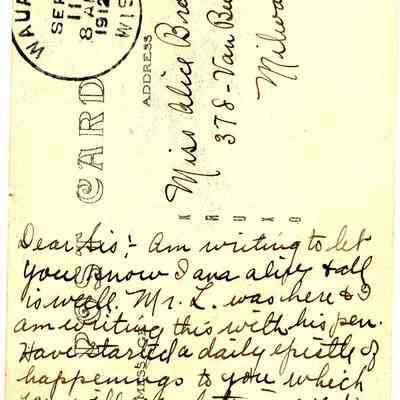 WAU
SEP
11
8 A
1912
WIS
POST CARD
ADDRESS
Miss Alice
378-Van Bu
Milwa
MESSAGE
Dear Sis:- Am writing to let
you know I am alive & all
is well. Mr. L. was here & I
am writing this with his pen.
Have started a daily epistle of
happenings to you which